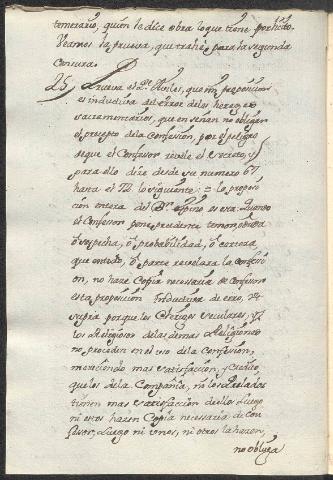 temerario, quien le dice obra lo que tiene perdido.
Veamos la prueva, que trahe para la segunda
Censura.
25, Prueva el Dr. Aviles, que mi proposicion
es inductiva del error de los hereges
sacramentarios, que enseñan no obligar
el precepto de la Confesion, por el peligro
de que el Confesor revele el secreto, y
para ello dice desde su numero 67
hasta el 72 lo siguiente: = la proposi
cion entera del Dr. Espino es esta: Quando
el Confesor pone prudente temor, o duda
o sospecha, o probabilidad, o certeza
que en todo, o parte revelara la confesi
on, no haze Copia necessaria de Confesor
esta proposicion Inductiva de error,
supra porque los Clerigos seculares, y
los Religiosos de las demas Religiones
no proceden en el uso de la Confesion,
mereciendo mas satisfacion, y credito,
que los de la Compañia, ni los Prelados
tienen mas satisfacion de ellos: Luego
ni estos hazen Copia necessaria de con
fesor, Luego ni unos, ni otros la hazen,
no obliga